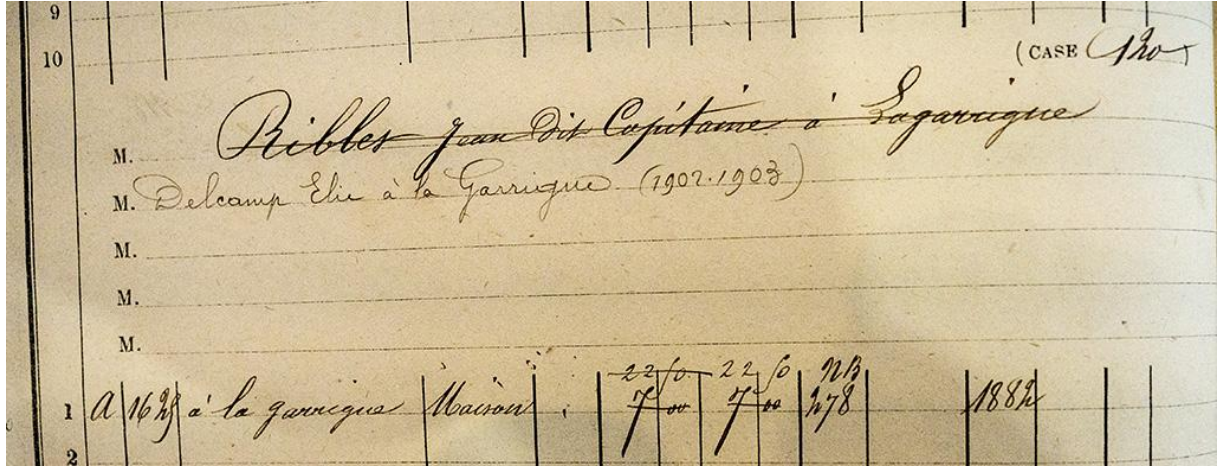 9
10
(CASE 120)
M. Ribles Jean dit Capitaine à Lagarrigue
M. Delcamp Elie à la Garrigue (1902.1903)
M.
M.
M.
22 50 22 50 NB
1 A 1625 à la garrigue Maison 7 00 7 00 278 1882
2